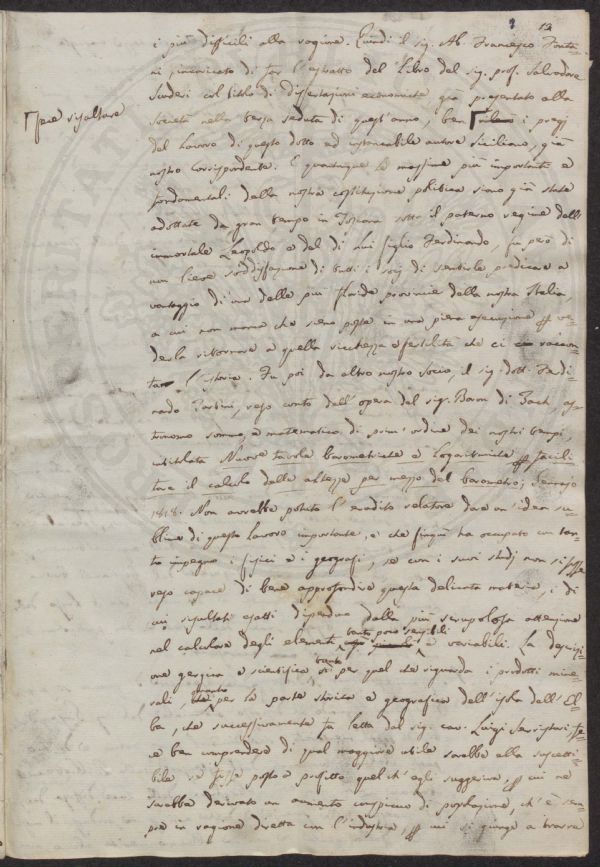 12
i più difficili alla ragione. Quindi il sig. Ab. Francesco Fonta-
ni incaricato di far l'estratto del Libro del sig. prof. Salvadore
Scuderi col titolo di dissertazioni economiche già presentato alla
Società nella terza seduta di quest'anno, ben i pregj
fece risaltare
del Lavoro di questo dotto ed instancabile autore Siciliano, già
nostro corrispondente. E quantunque le massime più importanti e
fondamentali dalla nostra costituzione politica siano già state
adottate da gran tempo in Toscana sotto il paterno regime dell'
immortale Leopoldo e del di Lui figlio Ferdinando, fu però di
non lieve soddisfazione di tutti i socj di sentirle predicare a
vantaggio di una delle più floride provincie della nostra Italia,
a cui non manca che sieno poste in una piena esecuzione per ve-
derla ritornare a quella ricchezza e fertilità che ci raccon-
ta l'istoria. Fu poi da altro nostro socio, il sig. dott. Ferdi-
nando Tartini, reso conto dell'opera del sig. Baron di Zach, as-
tronomo sommo, e matematico di prim'ordine dei nostri tempi,
intitolata Nuove tavole barometriche e Logaritmiche per facili-
tare il calcolo delle altezze per mezzo del barometro;
1818. Non avrebbe potuto l'erudito relatore dare un'idea su-
blime di questo lavoro importante, e che finquì ha occupato con tan-
to impegno i fisici e i geografi, se con i suoi studj non si fosse
reso capace di bene approfondire questa delicata materia, i di
cui resultati esatti dipendono dalla più scrupolosa attenzione
nel calcolare degli elementi tanto poco sensibili e variabili. La descrizi-
one georgica e scientifica, tanto per quel che riguarda i prodotti mine-
rali, quanto per la parte storica e geografica dell'isola dell'El-
ba, che successivamente fu letta dal sig. cav. Luigi fe-
ce ben comprendere di qual maggiore utile sarebbe alla suscetti-
bile se fosse posto a profitto quel ch'egli suggeriva, per cui ne
sarebbe derivato un aumento cospicuo di popolazione, ch'è sem-
pre in ragione diretta con l'industria, per cui si giunge a trarre